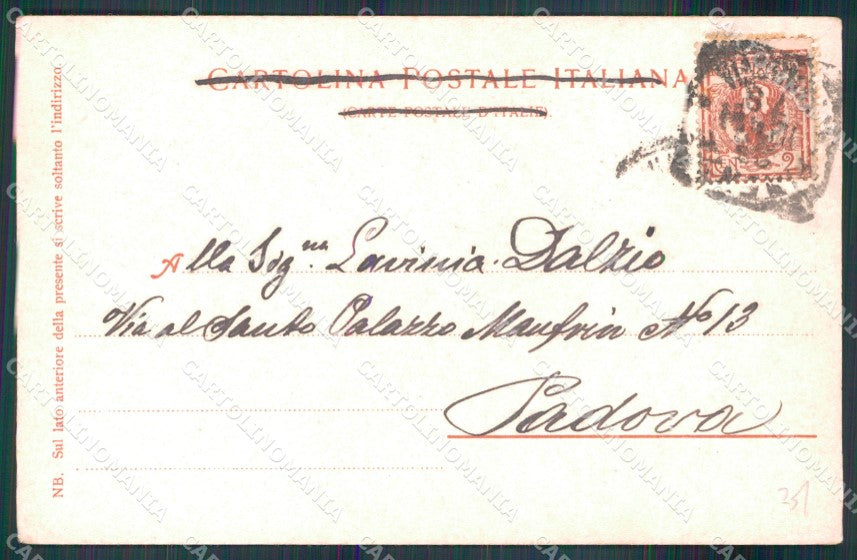 CARTOLINA POSTALE ITALIANA
CARTE POSTALE D'ITALIE
CENS 2
Alla Sig.na Lavinia Dalzio
Via al Santo Palazzo Manfrin No 13
Padova
NB. Sul lato anteriore della presente si scrive soltanto l'indirizzo.
25/
CARTOLINOMANIA